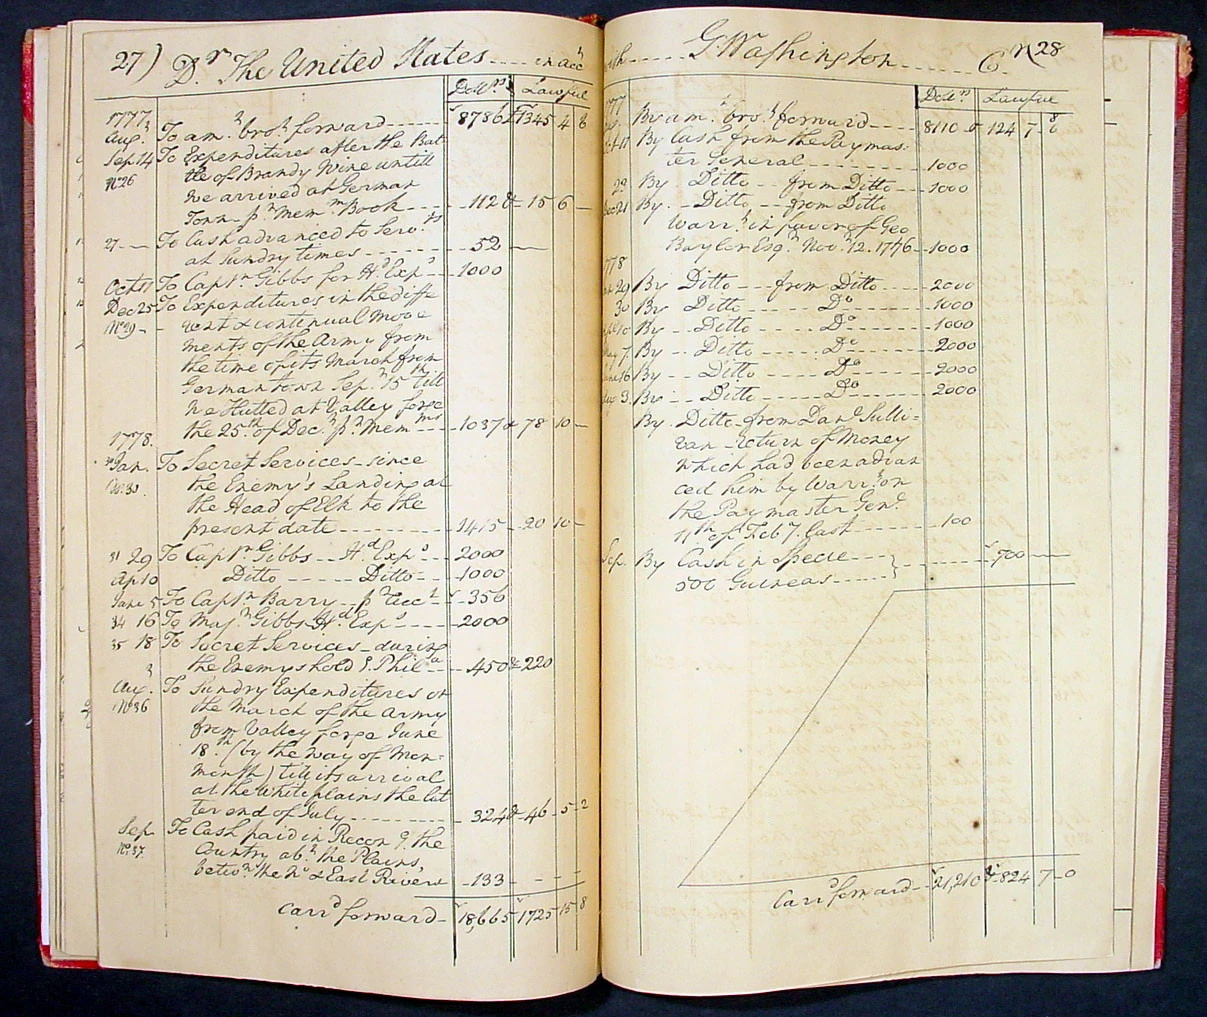 27) Dr The United States ---- in acct
Dollrs Lawful
1777
Augt To amt brot forward ---- 8786 & 1345 4 8
Sep. 14 To Expenditures after the Bat
No 26 tle of Brandy Wine untill
we arrived at German
Town pr Memm Book ---- 112 & 15 6 -
27 - To Cash advanced to Servts
at sundry times ---- 52
Oct 11 To Captn Gibbs for Hd Exps - 1000
Dec 25 To Expenditures in the diffe
No 29 - rent & continual move
ments of the Army from
the time of its March from
Germantown Sepr 15th till
we Hutted at Valley forge
the 25th of Decr pr Memms - 1037 & 78 10 -
1778.
Jan. To Secret Services - since
No 30. the Enemy's Landing at
the Head of Elk to the
present date ---- 1415 - 20 10 -
31 29 To Captn Gibbs -- Hd Exps - 2000
Ap 10 Ditto ---- Ditto -- 1000
June 5 To Captn Barry - pr Acct - 356
34 16 To Majr Gibbs Hd Exps ---- 2000
35 18 To Secret Services - during
the Enemys hold of Phila - 450 & 220
Augt To Sundry Expenditures on
No 36 the March of the Army
from Valley forge June
18th (by the way of Mon-
mouth) till its arrival
at the Whiteplains the lat
ter end of July ---- 324 & 46 - 5 - 2
Sep To Cash paid in Recong the
No 37. Country abt the Plains,
betwn the No & East Rivers - 133 - - -
Carrd forward - 18,665 1725 15 8
with ---- G Washington ---- Cr 28
Dollrs Lawful
By amt brot forward ---- 8110 & 124 7 - 8
By Cash from the Paymas-
ter General ---- 1000
22 By Ditto -- from Ditto -- 1000
Dec 21 By - Ditto -- from Ditto
Warrt in favor of Geo
Baylor Esqr Novr 12. 1776 - 1000
29 By Ditto -- from Ditto -- 2000
30 By Ditto ---- Do ---- 1000
10 By - Ditto ---- Do ---- 1000
7. By - Ditto ---- Do ---- 2000
16 By - Ditto ---- Do ---- 2000
3. By - Ditto ---- Do ---- 2000
By Ditto from Danl Sulli-
van - return of Money
which had been advan
ced him by Warrt on
the Paymaster Genl
11th of Feby last ---- 100
Sep. By Cash in Specie ----
500 Guineas ---- 700
Carrd forward - 21,210 & 824 7 - 0